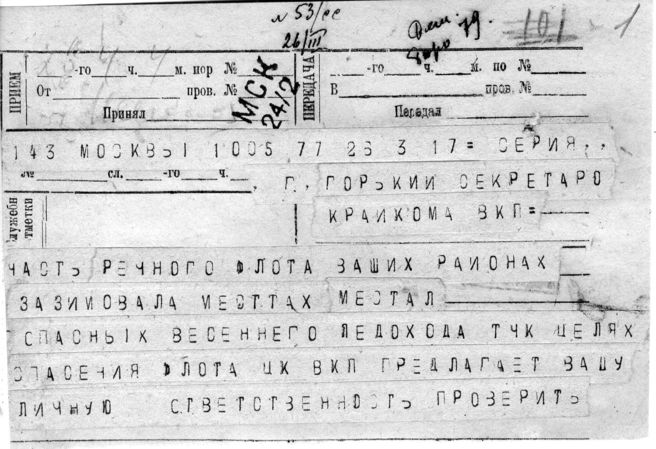 № 53/сс
26/III
101 1
ПРИЕМ
-го ч. м. пор №
От пров. №
Принял
МСК
24/2
ПЕРЕДАЧА
-го ч. м. по №
В пров. №
Передал
143 МОСКВЫ 1005 77 26 3 17= СЕРИЯ
№ сл. -го ч.
Г. ГОРЬКИЙ СЕКРЕТАРО
КРАИКОМА ВКП=
ЧАСТЬ РЕЧНОГО ФЛОТА ВАШИХ РАИОНАХ
ЗАЗИМОВАЛА МЕСТТАХ МЕСТАЛ
ОПАСНЫХ ВЕСЕННЕГО ЛЕДОХОДА ТЧК ЦЕЛЯХ
СПАСЕНИЯ ФЛОТА ЦК ВКП ПРЕДЛАГАЕТ ВАШУ
ЛИЧНУЮ ОТВЕТСТВЕННОСТЬ ПРОВЕРИТЬ